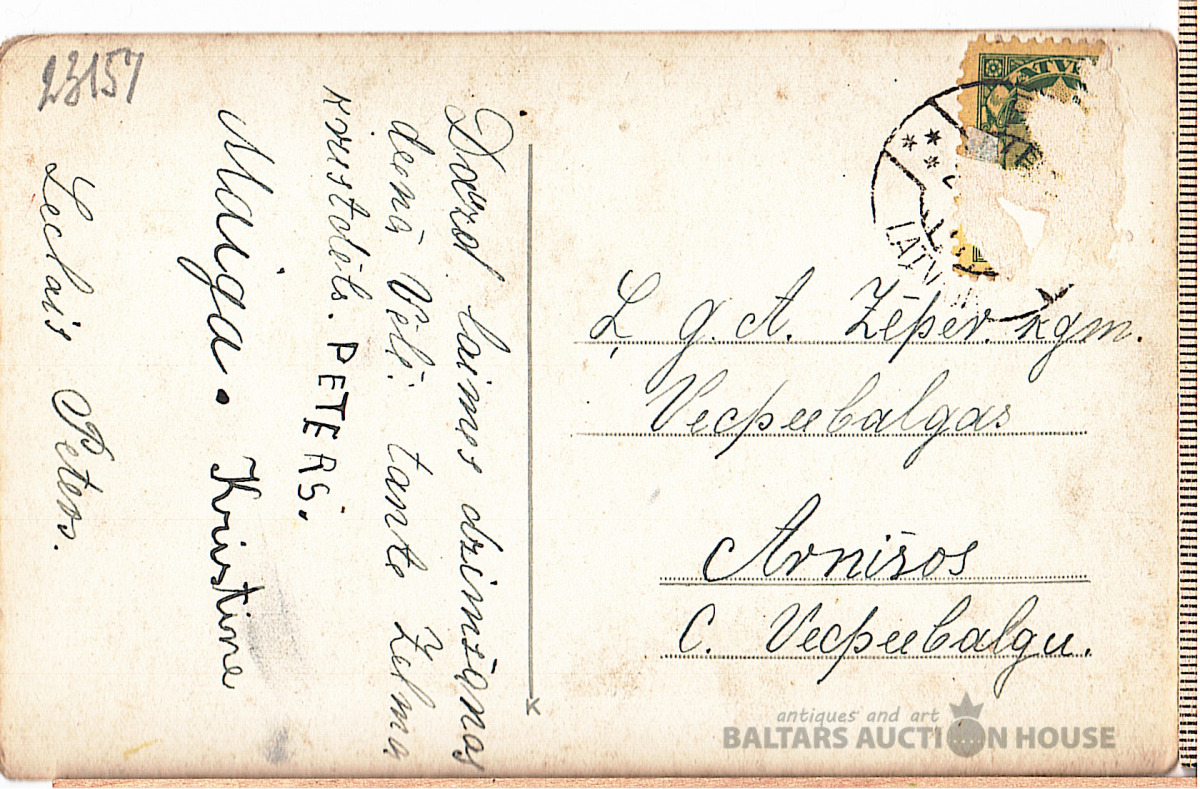 23157
Daržd laimes dzimšanas
dienā Vēlē tante Zelma
krustdēls. PETERS.
Maiga. Kristine
Lielais Peters.
LATVI
LATVI
L. g. A. Zēper. kgm.
Vecpeebalgas
Arnišos
C. Vecpeebalgu.
K
antiques and art
BALTARS AUCTION HOUSE